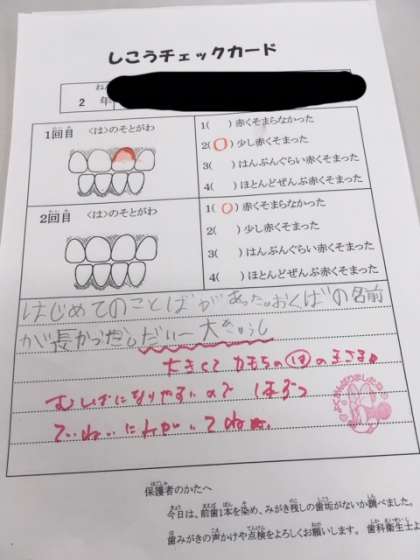 しこうチェックカード
2 年
1回目 〈は〉のそとがわ
1( )赤くそまらなかった
2(○)少し赤くそまった
3( )はんぶんぐらい赤くそまった
4( )ほとんどぜんぶ赤くそまった
2回目 〈は〉のそとがわ
1(○)赤くそまらなかった
2( )少し赤くそまった
3( )はんぶんぐらい赤くそまった
4( )ほとんどぜんぶ赤くそまった
はじめてのことばがあった。おくばの名前
が長かった。だい一大きゅうし
大きくて 力もちの は の王さま
むしばになりやすいので
ていねいにみがいてね
保護者のかたへ
今日は、前歯1本を染め、みがき残しの歯垢がないか調べました。
歯みがきの声かけや点検をよろしくお願いします。 歯科衛生士よ